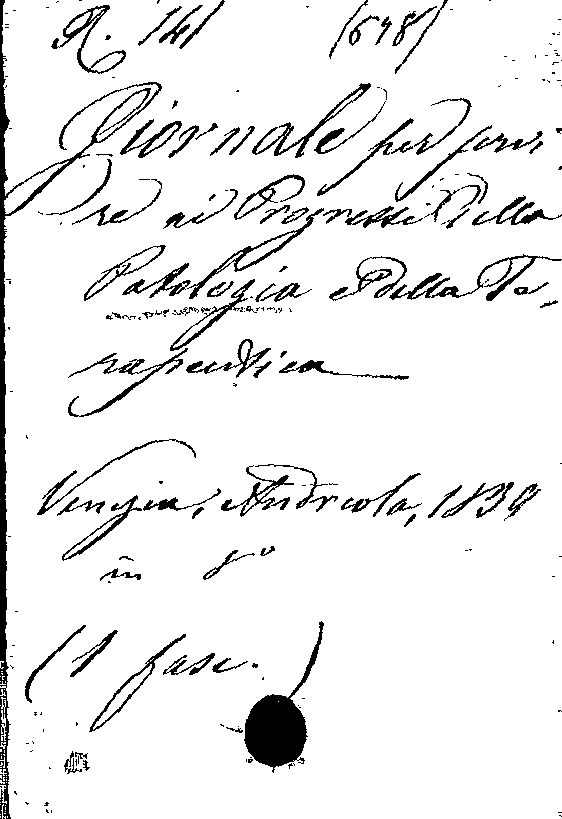 R. 141 (648)
Giornale per servi
re ai Progressi della
Patologia e della Te-
rapeutica
Venezia, Andreola, 1839
in 8º
(1 fasc.)